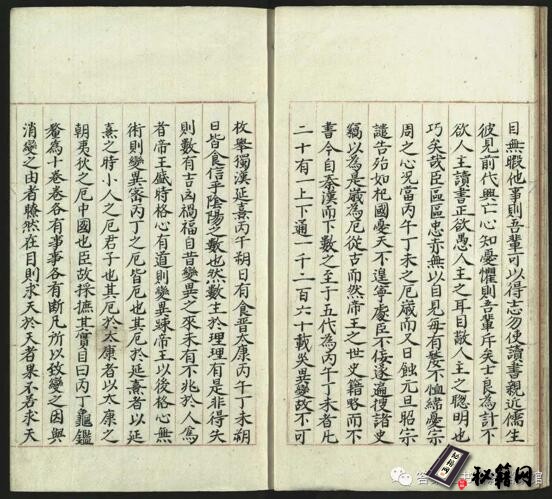 目無暇他事則吾輩可以得志勿使讀書親近儒生
彼見前代興亡心知憂懼則吾輩斥矣士良為計不
欲人主讀書正欲愚人主之耳目蔽人主之聰明也
巧矣哉臣區區忠赤無以自見每有嫠不恤緯憂宗
周之心況當丙午丁未之厄歲而又日蝕元旦昭示
譴告殆如杞國憂天不遑寧處臣不佞遂遍搜諸史
竊以為是歲為厄從古而然帝王之世史籍略而不
書今自秦漢而下數之至于五代為丙午丁未者凡
二十有一上下通一千二百六十載災異變故不可
枚舉獨漢延熹丙午朔日有食晉太康丙午丁未朔
日皆食信乎陰陽之數也然數主於理理有是非得失
則數有吉凶禍福自昔變異之來未有不兆於人為
者帝王盛時格心有道則變異弭帝王以後格心無
術則變異審丙丁之厄皆厄也其厄於延熹者以延
熹之時小人之厄君子也其厄於太康者以太康之
朝夷狄之厄中國也臣故採摭其實目曰丙丁龜鑑
釐為十卷卷各有事事各有斷凡所以致變之因與
消變之由者瞭然在目則求天於天者果不若求天
秘籍网